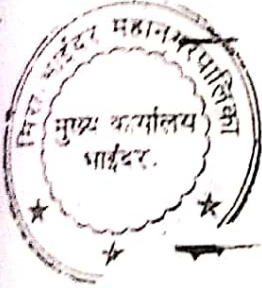 मिरा भाईंदर महानगरपालिका
मुख्य कार्यालय
भाईंदर.